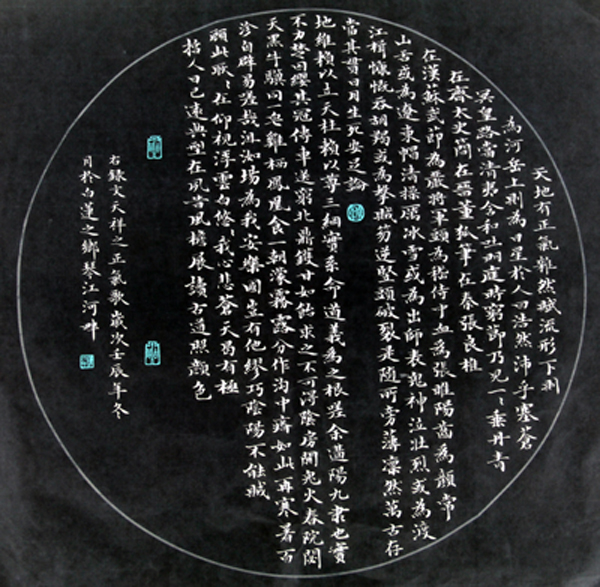 天地有正氣雜然賦流形下則
為河岳上則為日星於人曰浩然沛乎塞蒼
冥皇路當清夷含和吐明庭時窮節乃見一一垂丹青
在齊太史簡在晉董狐筆在秦張良椎
在漢蘇武節為嚴將軍頭為嵇侍中血為張睢陽齒為顏常
山舌或為遼東帽清操厲冰雪或為出師表鬼神泣壯烈或為渡
江楫慷慨吞胡羯或為擊賊笏逆豎頭破裂是所旁薄凜然萬古存
當其貫日月生死安足論
地維賴以立天柱賴以尊三綱實系命道義為之根嗟余遘陽九隸也實
不力楚囚纓其冠傳車送窮北鼎鑊甘如飴求之不可得陰房闃鬼火春院閟
天黑牛驥同一皂雞棲鳳凰食一朝蒙霧露分作溝中瘠如此再寒暑百
沴自辟易嗟哉沮洳場為我安樂國豈有他繆巧陰陽不能賊
顧此耿々在仰視浮雲白悠々我心悲蒼天曷有極
哲人日已遠典型在夙昔風檐展讀古道照顏色
右錄文天祥之正氣歌歲次壬辰年冬
月於白蓮之鄉琴江河畔